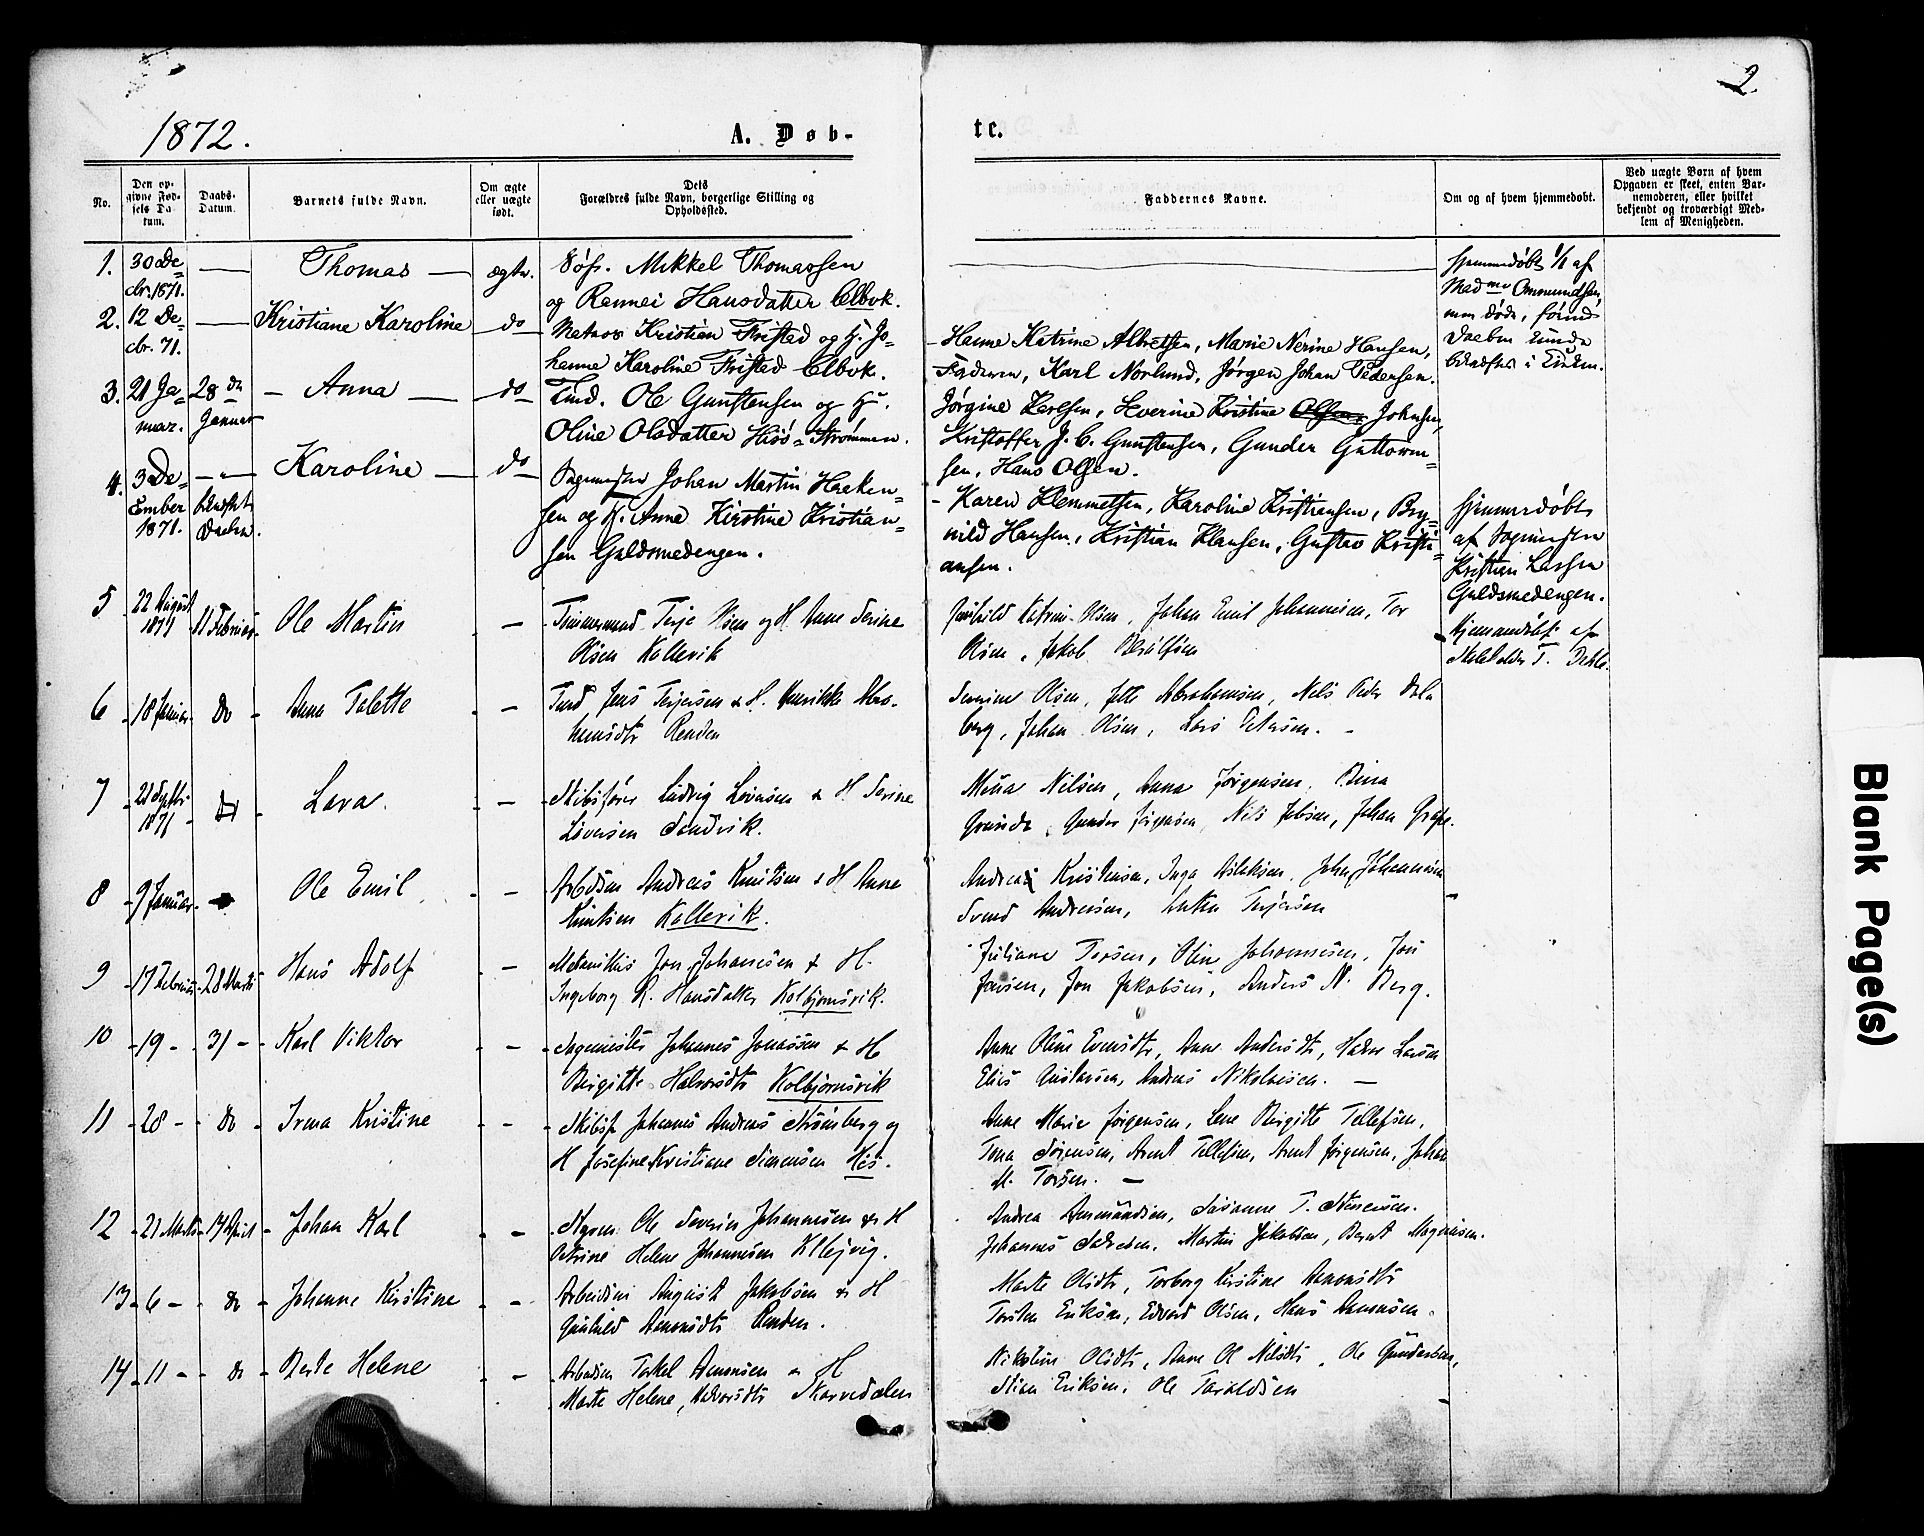 2
1872.
A. Døb-
te.
No.
Den op-
givne Fød-
sels Da-
tum.
Daabs-
Datum.
Barnets fulde Navn.
Om ægte
eller uægte
født.
Dets
Forældres fulde Navn, borgerlige Stilling og
Opholdssted.
Faddernes Navne.
Om og af hvem hjemmedøbt.
Ved uægte Børn af hvem
Opgaven er skeet, enten Bar-
nemoderen, eller hvilket
bekjendt og troværdigt Med-
lem af Menigheden.
1. 30 De-
cbr. 1871. — Thomas — ægte. Søf. Mikkel Thomassen
og Hansdatter Elvek.
Hjemmedøbt 1/1 af
Mad me Ommundsen,
men døde, førend
Daaben kunde
i Kirken.
2. 12 De-
cbr. 71. — Kristiane Karoline do Matros Kristian Fristad og H. Jo-
hanne Karoline Fristad
Hanne Katrine Albretsen, Marie Nerine Hansen,
Faderen, Karl Norlund, Jørgen Johan Pedersen.
3. 21 Ja-
nuar. 28 de
Januar - Anna — do Tmd. Ole Gunstensen og Hu.
Oline Olsdatter Hisø-Strømmen.
Jørgine Karlsen, Severine Kristine Olsen, Johnsen,
Kristoffer J. C. Gunstensen, Gunder Guttorm-
sen, Hans Olsen.
4. 3 De-
cember
1871. — Karoline — do Sagmester Johan Martin Haaken-
sen og H. Anne Kirstine Kristian-
sen Guldsmedengen.
- Karen Klemmetsen, Karoline Kristiansen, Bry-
nild Hansen, Kristian Klausen, Gustav Kristi-
ansen.
Hjemmedøbt
af Sagmester
Kristian Larsen
Guldsmedengen.
5 22 August
1871 11 Februar Ole Martin - Tømmermand Terje Olsen og H. Anne Serine
Olsen Kollevik
Katrine Olsen, Johan Emil Johannesen, Tor
Olsen, Jakob
Hjemmedøbt af
Skoleholder T. Dekke
6 18 Januar do Anna Talette - Tmd Jens Terjesen & H. Henrikke Abra-
hamsdtr Renden
Severine Olsen, Jette Abrahamsen, Nils Peder Dale
berg, Johan Olsen, Lars Petersen.
7 21 Septbr
1871 do Lava. - Skibsfører Ludvig Løvesen & H. Serine
Løvesen Sandvik.
Nilsen, Anna Jørgensen,
Gunder Jørgensen, Nils Jebsen, Johan
8 9 Januar Ole Emil - Arbdsm Andreas Knutsen & H Anne
Knutsen Kollevik.
Andrea Kristensen, Inga Aslaksen, John Johannesen
Svend Andreasen, Terjesen
9 17 Februar 28 Marts Hans Adolf - Jon Johannesen & H.
Ingeborg R. Hansdatter Kolbjørnsvik.
Juliane Torsen, Oline Johannesen, Jon
Jonsen, Jon Jakobsen, Anders N. Berg.
10 19 - 31 - Karl Viktor - Sagmester Johannes Jonassen & H
Birgitte Halvorsdtr Kolbjørnsvik
Anne Oline Evensdtr, Anne Andersdtr, Halvor Larsen
Elias Gustavsen, Andreas Nikolaisen. —
11 28 - do Irma Kristine - Skibsf Johannes Andreas Strømberg og
H Josefine Kristiane Simensen His.
Anne Marie Jørgensen, Lene Birgitte Tellefsen,
Tona Jørgensen, Arent Tellefsen, Arent Jørgensen, Johan
M. Torsen. —
12 21 Marts 14 April Johan Karl - Ole Severin Johannesen & H
Petrine Helene Johannesen
Andrea Aanundsen, Susanne T.
Johannes Martin Jakobsen, Bernt Magnusen.
13 6 - do Johanne Kirstine - Arbeidsm August Jakobsen & H
Gunhild Aanonsdtr Renden.
Marte Olsdtr, Torborg Kirstine Aanonsdtr
Torsten Eriksen, Edvard Olsen, Hans Aanonsen.
14 11 - do Berte Helene - Arbeidsm Torkel Aanonsen & H
Marte Helene Halvorsdtr Skarvedalen
Nikoline Olsdtr, Anne Ol Nilsdtr, Ole Gundersen,
Stian Eriksen, Ole Taraldsen
Blank Page(s)